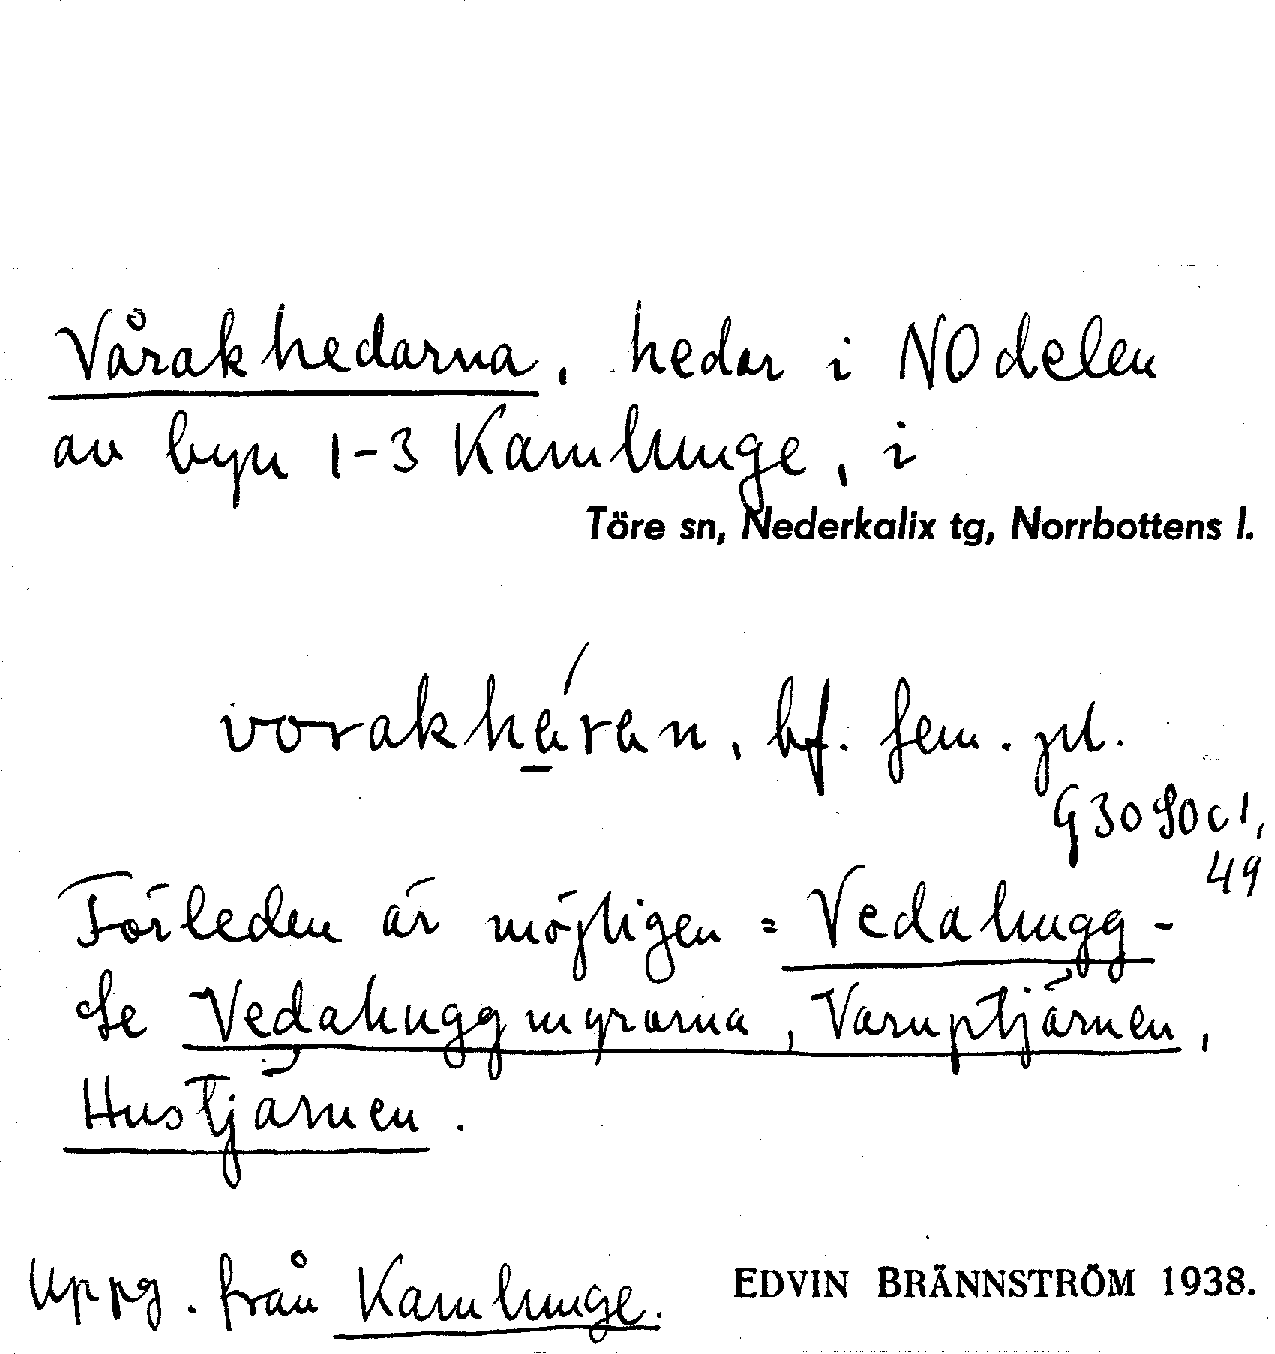 Vårakhedarna, hedar i NOdelen
av byn 1-3 Kamlunge, i
Töre sn, Nederkalix tg, Norrbottens l.
vorakhe̲ran, bf. fem. pl.
49
Förleden är möjligen = Vedahugg-
Se Vedahuggmyrarna, Varuptjärnen,
Hustjärnen.
Uppg. från Kamlunge.
EDVIN BRÄNNSTRÖM 1938.